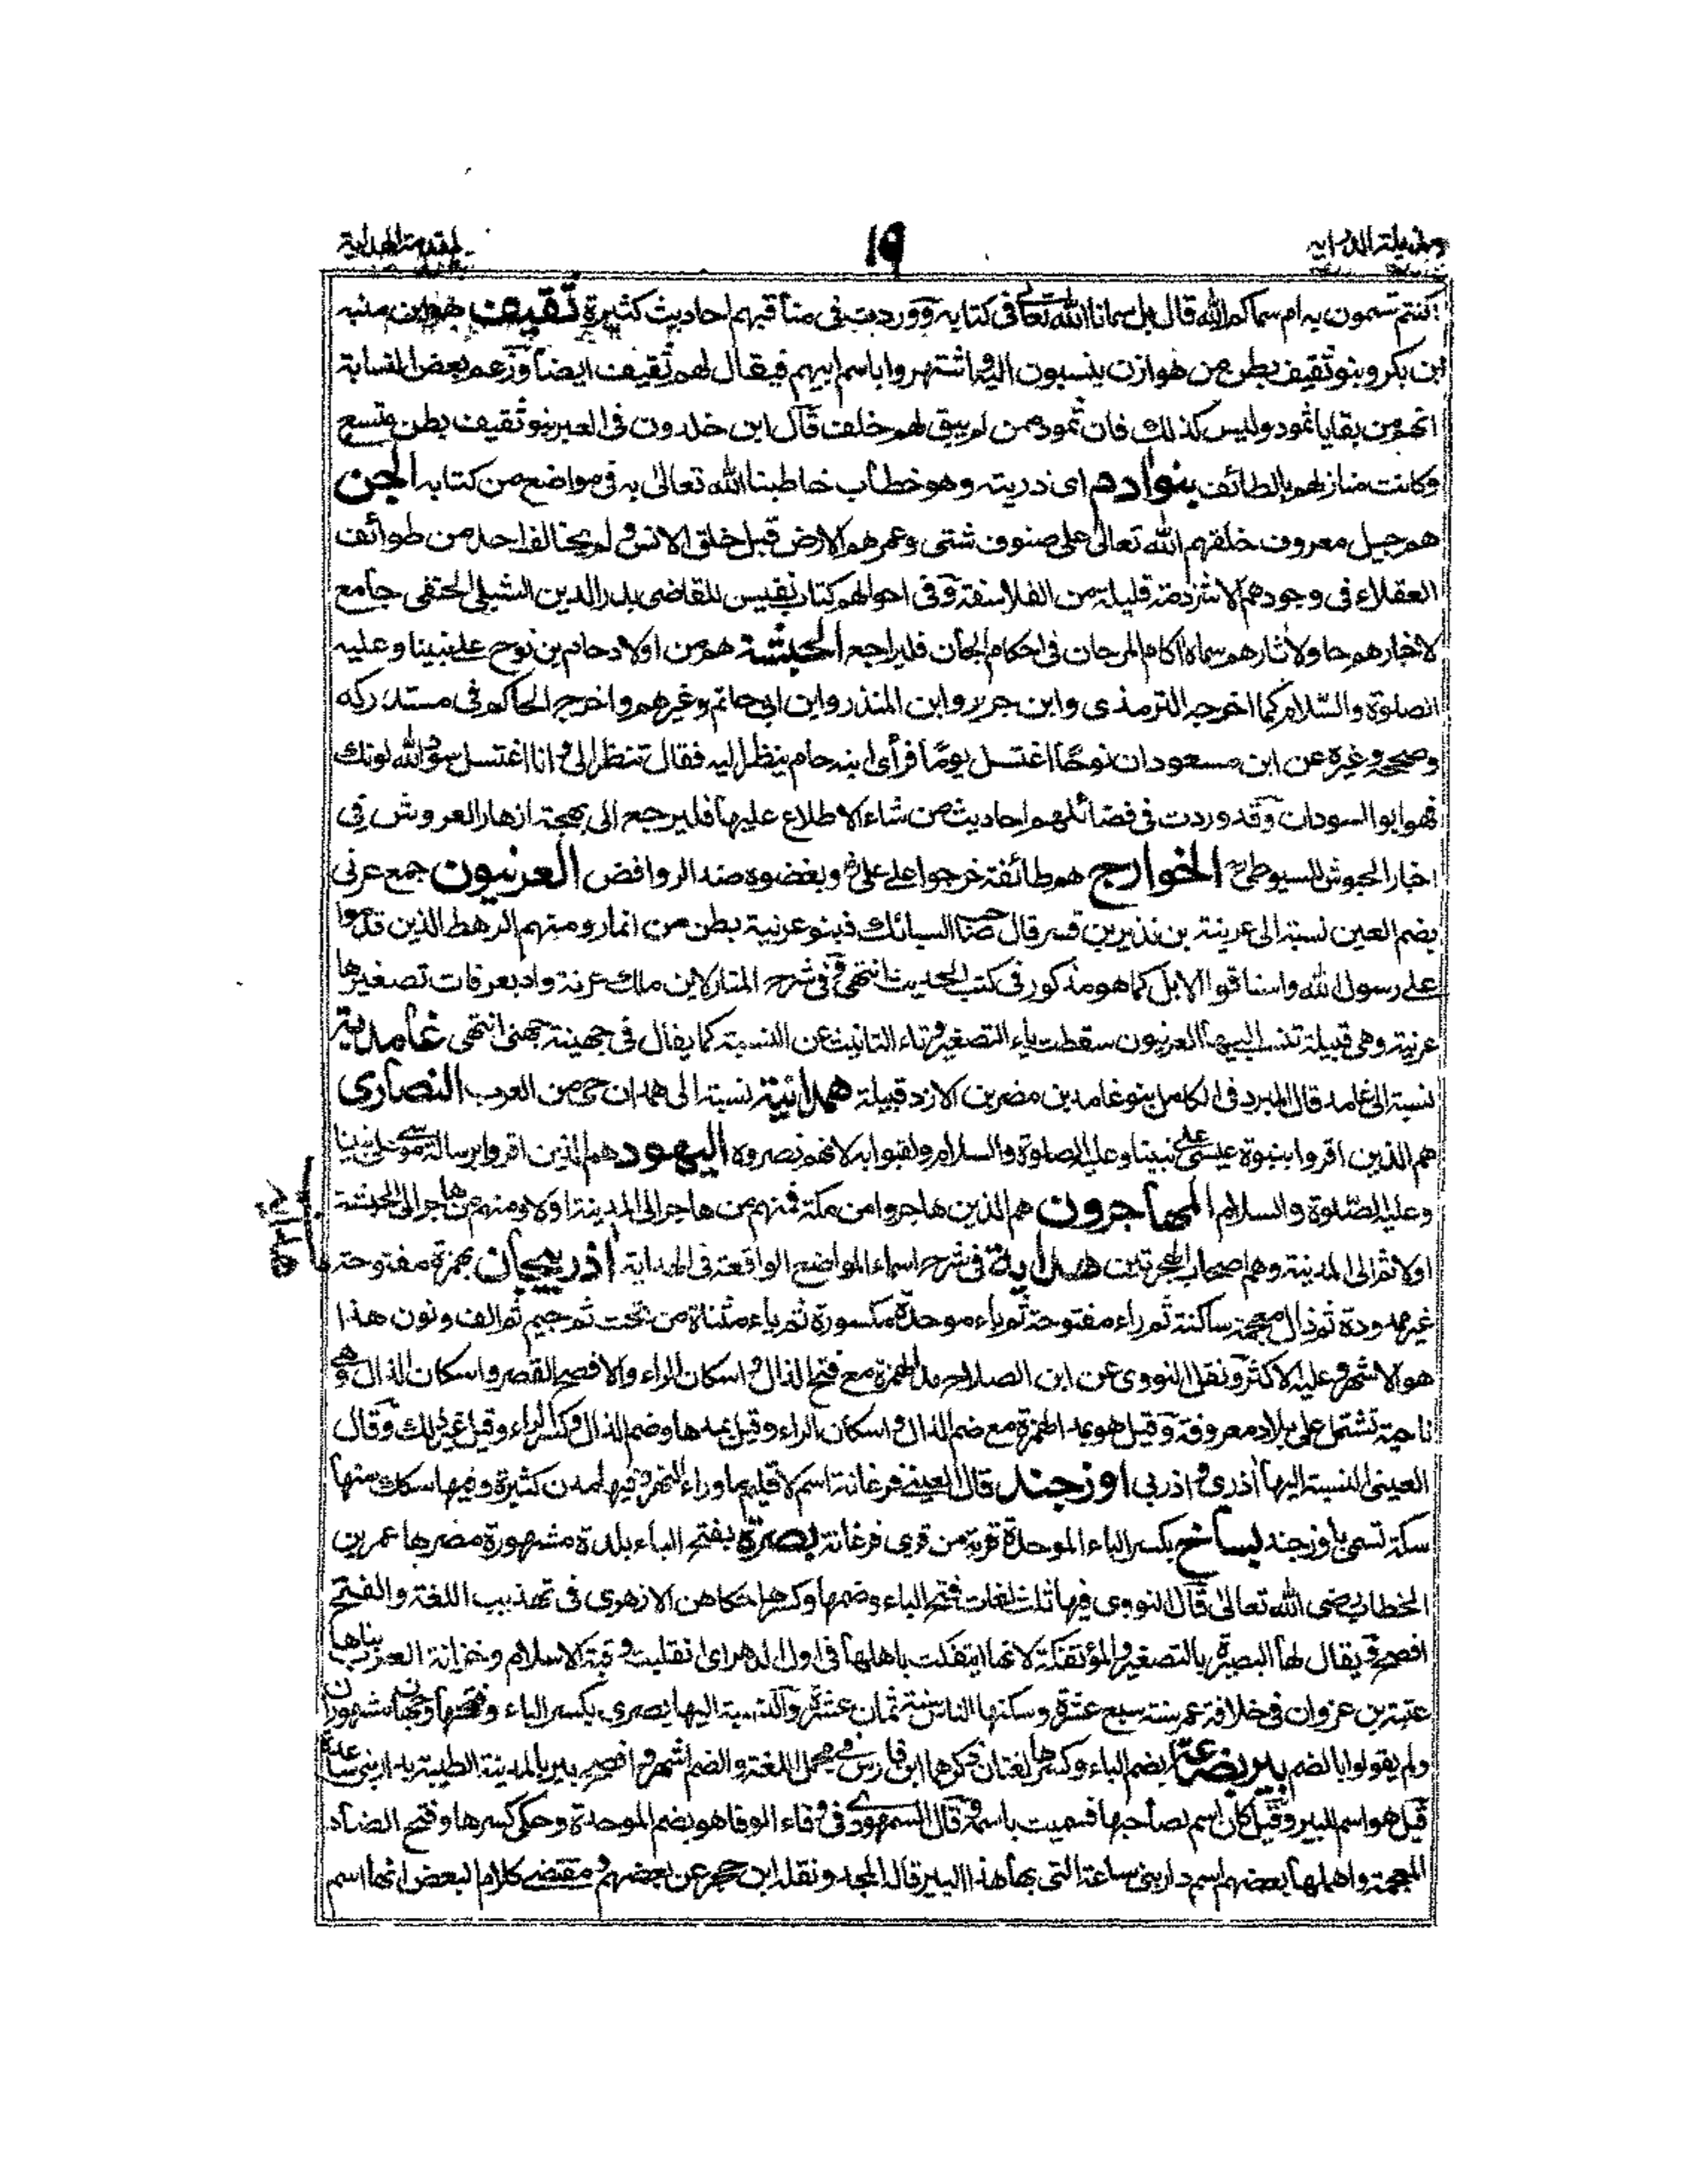 مذيلة الدراية ١٩ لمقدمة الهداية
اكنتم تسمون به ام سماكم الله قال بل سمانا الله تعالى فى كتابه ووردت فى مناقبهم احاديث كثيرة ثقيف هو ابن منبه
ابن بكر وبنو ثقيف بطن من هوازن ينسبون اليه واشتهروا باسم ابيهم فيقال لهم ثقيف ايضا وزعم بعض النسابة
انهم من بقايا ثمود وليس كذلك فان ثمود ممن لم يبق لهم خلف قال ابن خلدون فى العبر بنو ثقيف بطن متسع
وكانت منازلهم بالطائف بنو ادم اى ذريته وهو خطاب خاطبنا الله تعالى به فى مواضع من كتابه الجن
هم جيل معروف خلقهم الله تعالى على صنوف شتى وعمرهم الارض قبل خلق الانس ولم يخالف احد من طوائف
العقلاء فى وجودهم الا شرذمة قليلة من الفلاسفة وفى احوالهم كتاب نفيس للقاضى بدر الدين الشبلى الحنفى جامع
لاخبارهم حاو لاثارهم سماه اكام المرجان فى احكام الجان فليراجع الحبشة هم من اولاد حام بن نوح على نبينا وعليه
الصلوة والسلام كما اخرجه الترمذى وابن جرير وابن المنذر وابن ابى حاتم وغيرهم واخرج الحاكم فى مستدركه
وصححه وغيره عن ابن مسعود ان نوحا اغتسل يوما فرأى ابنه حام ينظر اليه فقال تنظر الى وانا اغتسل سود الله لونك
فهو ابو السودان وقد وردت فى فضائلهم احاديث من شاء الاطلاع عليها فليرجع الى بهجته ازهار العروش فى
اخبار الحبوش للسيوطى الخوارج هم طائفة خرجوا على على وبغضوه ضد الروافض العرنيون جمع عرنى
بضم العين نسبة الى عرينة بن نذير بن قسر قال صاحب السبائك فبنو عرنية بطن من انمار ومنهم الرهط الذين قدموا
على رسول الله واستاقوا الابل كما هو مذكور فى كتب الحديث انتهى وفى شرح المنار لابن ملك عرنة واد بعرفات تصغيرها
عرنية وهى قبيلة تنسب اليها العرنيون سقطت ياء التصغير وتاء التانيث عن النسبة كما يقال فى جهينة جهنى انتهى غامدية
نسبة الى غامد قال المبرد فى الكامل بنو غامد بن مضر بن الازد قبيلة همدانية نسبة الى همدان حى من العرب النصارى
هم الذين اقروا بنبوة عيسى على نبينا وعليه الصلوة والسلام ولقبوا به لانهم نصروه اليهود هم الذين اقروا برسالة موسى على نبينا
وعليه الصلوة والسلام المهاجرون هم الذين هاجروا من مكة فمنهم من هاجر الى المدينة اولا ومنهم من هاجر الى الحبشة
اولا ثم الى المدينة وهم اصحاب الهجرتين هداية فى شرح اسماء المواضع الواقعة فى الهداية اذربيجان بهمزة مفتوحة
غير ممدودة ثم ذال معجمة ساكنة ثم راء مفتوحة ثم باء موحدة مكسورة ثم ياء مثناة من تحت ثم جيم ثم الف ونون هذا
هو الاشهر وعليه الاكثر ونقل النووى عن ابن الصلاح مد الهمزة مع فتح الذال واسكان الراء والافصح القصر واسكان الذال وهى
ناحية تشتمل على بلاد معروفة وقيل هو بمد الهمزة مع ضم الذال واسكان الراء وقيل بمدها وضم الذال وكسر الراء وقيل غير ذلك وقال
العينى النسبة اليها اذرى واذربى اوزجند قال العينى فرغانة اسم لاقليم ما وراء النهر وفيها مدن كثيرة وفيها سكك منها
سكة تسمى باوزجند بساغ بكسر الباء الموحدة قرية من قرى فرغانة بصرة بفتح الباء بلدة مشهورة مصرها عمر بن
الخطاب رضى الله تعالى قال النووى فيها ثلث لغات فتح الباء وضمها وكسرها حكاهن الازهرى فى تهذيب اللغة والفتح
افصح ويقال لها البصيرة بالتصغير والمؤتفكة لانها ايتفكت باهلها فى اول الدهر اى انقلبت وقبة الاسلام وخزانة العرب بناها
عتبة بن غزوان فى خلافة عمر سنة سبع عشرة وسكنها الناس سنة ثمان عشرة والنسبة اليها بصرى بكسر الباء وفتحها وجهان مشهوران
ولم يقولوا بالضم بير بضاعة بضم الباء وكسرها لغتان ذكرها ابن فارس فى مجمل اللغة والضم اشهر وافصح بير بالمدينة الطيبة بدار بنى ساعدة
قيل هو اسم البير وقيل كان اسم لصاحبها فسميت باسمه وقال السمهودى فى وفاء الوفا هو بضم الموحدة وحكى كسرها وفتح الضاد
المعجمة واهملها بعضهم اسم دار بنى ساعدة التى بها هذا البير قاله المجد ونقله ابن حجر عن بعضهم ومقتضى كلام البعض انها اسم